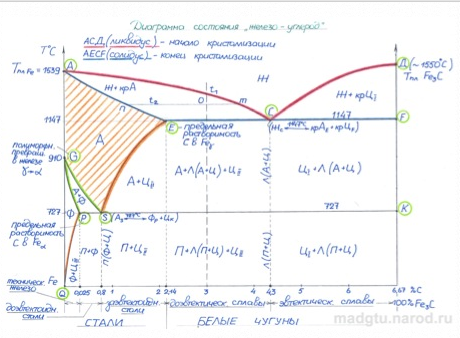 Диаграмма состояния „железо-углерод"
АСД (ликвидус) - начало кристализации
AECF (солидус) - конец кристализации
T°C
A
Д (~1550°C)
Тпл Fe₃C
Тпл Fe=1539
Ж
Ж+крА
t₂
t₁
m
n
Ж+крЦI
1147
E
C
1147
F
- предельная растворимость С в Feγ
(Жc 1147°C крАE+крЦF)
A
910
G
полиморфн. превращ в железе γ→α
А+Ф
А+ЦII
А+Л(А+Ц)+ЦII
Л(А+Ц)
ЦI+Л(А+Ц)
727
Ф
P
S
727
K
предельная растворимость С в Feα
Ф+ЦIII
П+Ф
П(Ф+Ц)
П+ЦII
П+Л(П+Ц)+ЦII
Л(П+Ц)
ЦI+Л(П+Ц)
техническ. железо
Fe
Q
0,025
0,8
2,14
4,3
6,67 %C
-100%Fe₃C
доэвтектоидн. стали
заэвтектоидн. стали
доэвтектическ. сплавы
заэвтектическ. сплавы
СТАЛИ
БЕЛЫЕ ЧУГУНЫ
madgtu.narod.ru